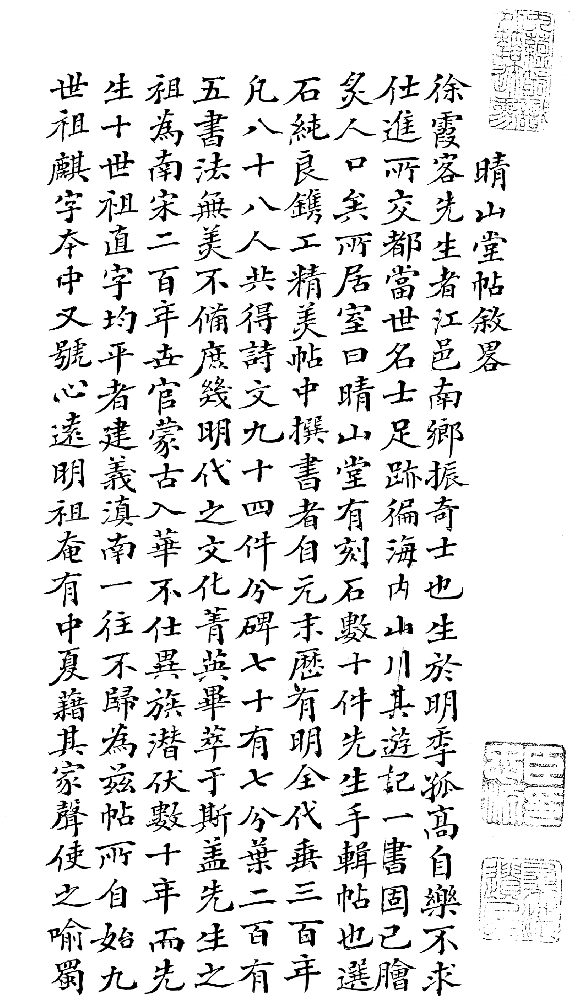 晴山堂帖敘畧
徐霞客先生者江邑南鄉振奇士也生於明季孤高自樂不求
仕進所交都當世名士足跡徧海內山川其遊記一書固已膾
炙人口矣所居室曰晴山堂有刻石數十件先生手輯帖也選
石純良鐫工精美帖中撰書者自元末歷有明全代垂三百年
凡八十八人共得詩文九十四件分碑七十有七分葉二百有
五書法無美不備庶幾明代之文化菁英畢萃于斯盖先生之
祖為南宋二百年世官蒙古入華不仕異族潛伏數十年而先
生十世祖直字均平者建義滇南一往不歸為茲帖所自始九
世祖麒字本中又號心遠明祖奄有中夏藉其家聲使之喻蜀